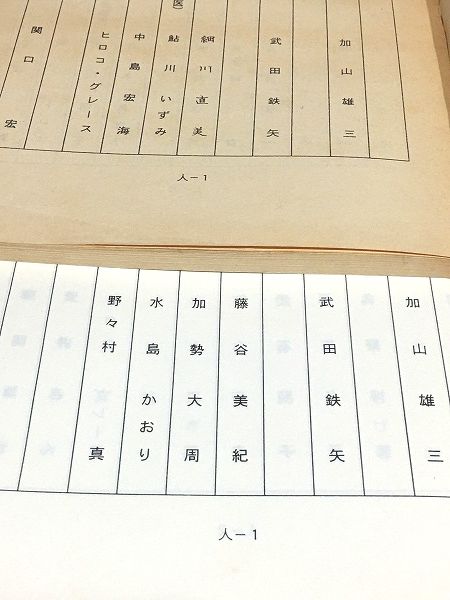 加山雄三
武田鉄矢
細川直美
鮎川いずみ
(医)
中島宏海
ヒロコ・グレース
関口宏
人－1
加山雄三
武田鉄矢
藤谷美紀
加勢大周
水島かおり
野々村真
人－1